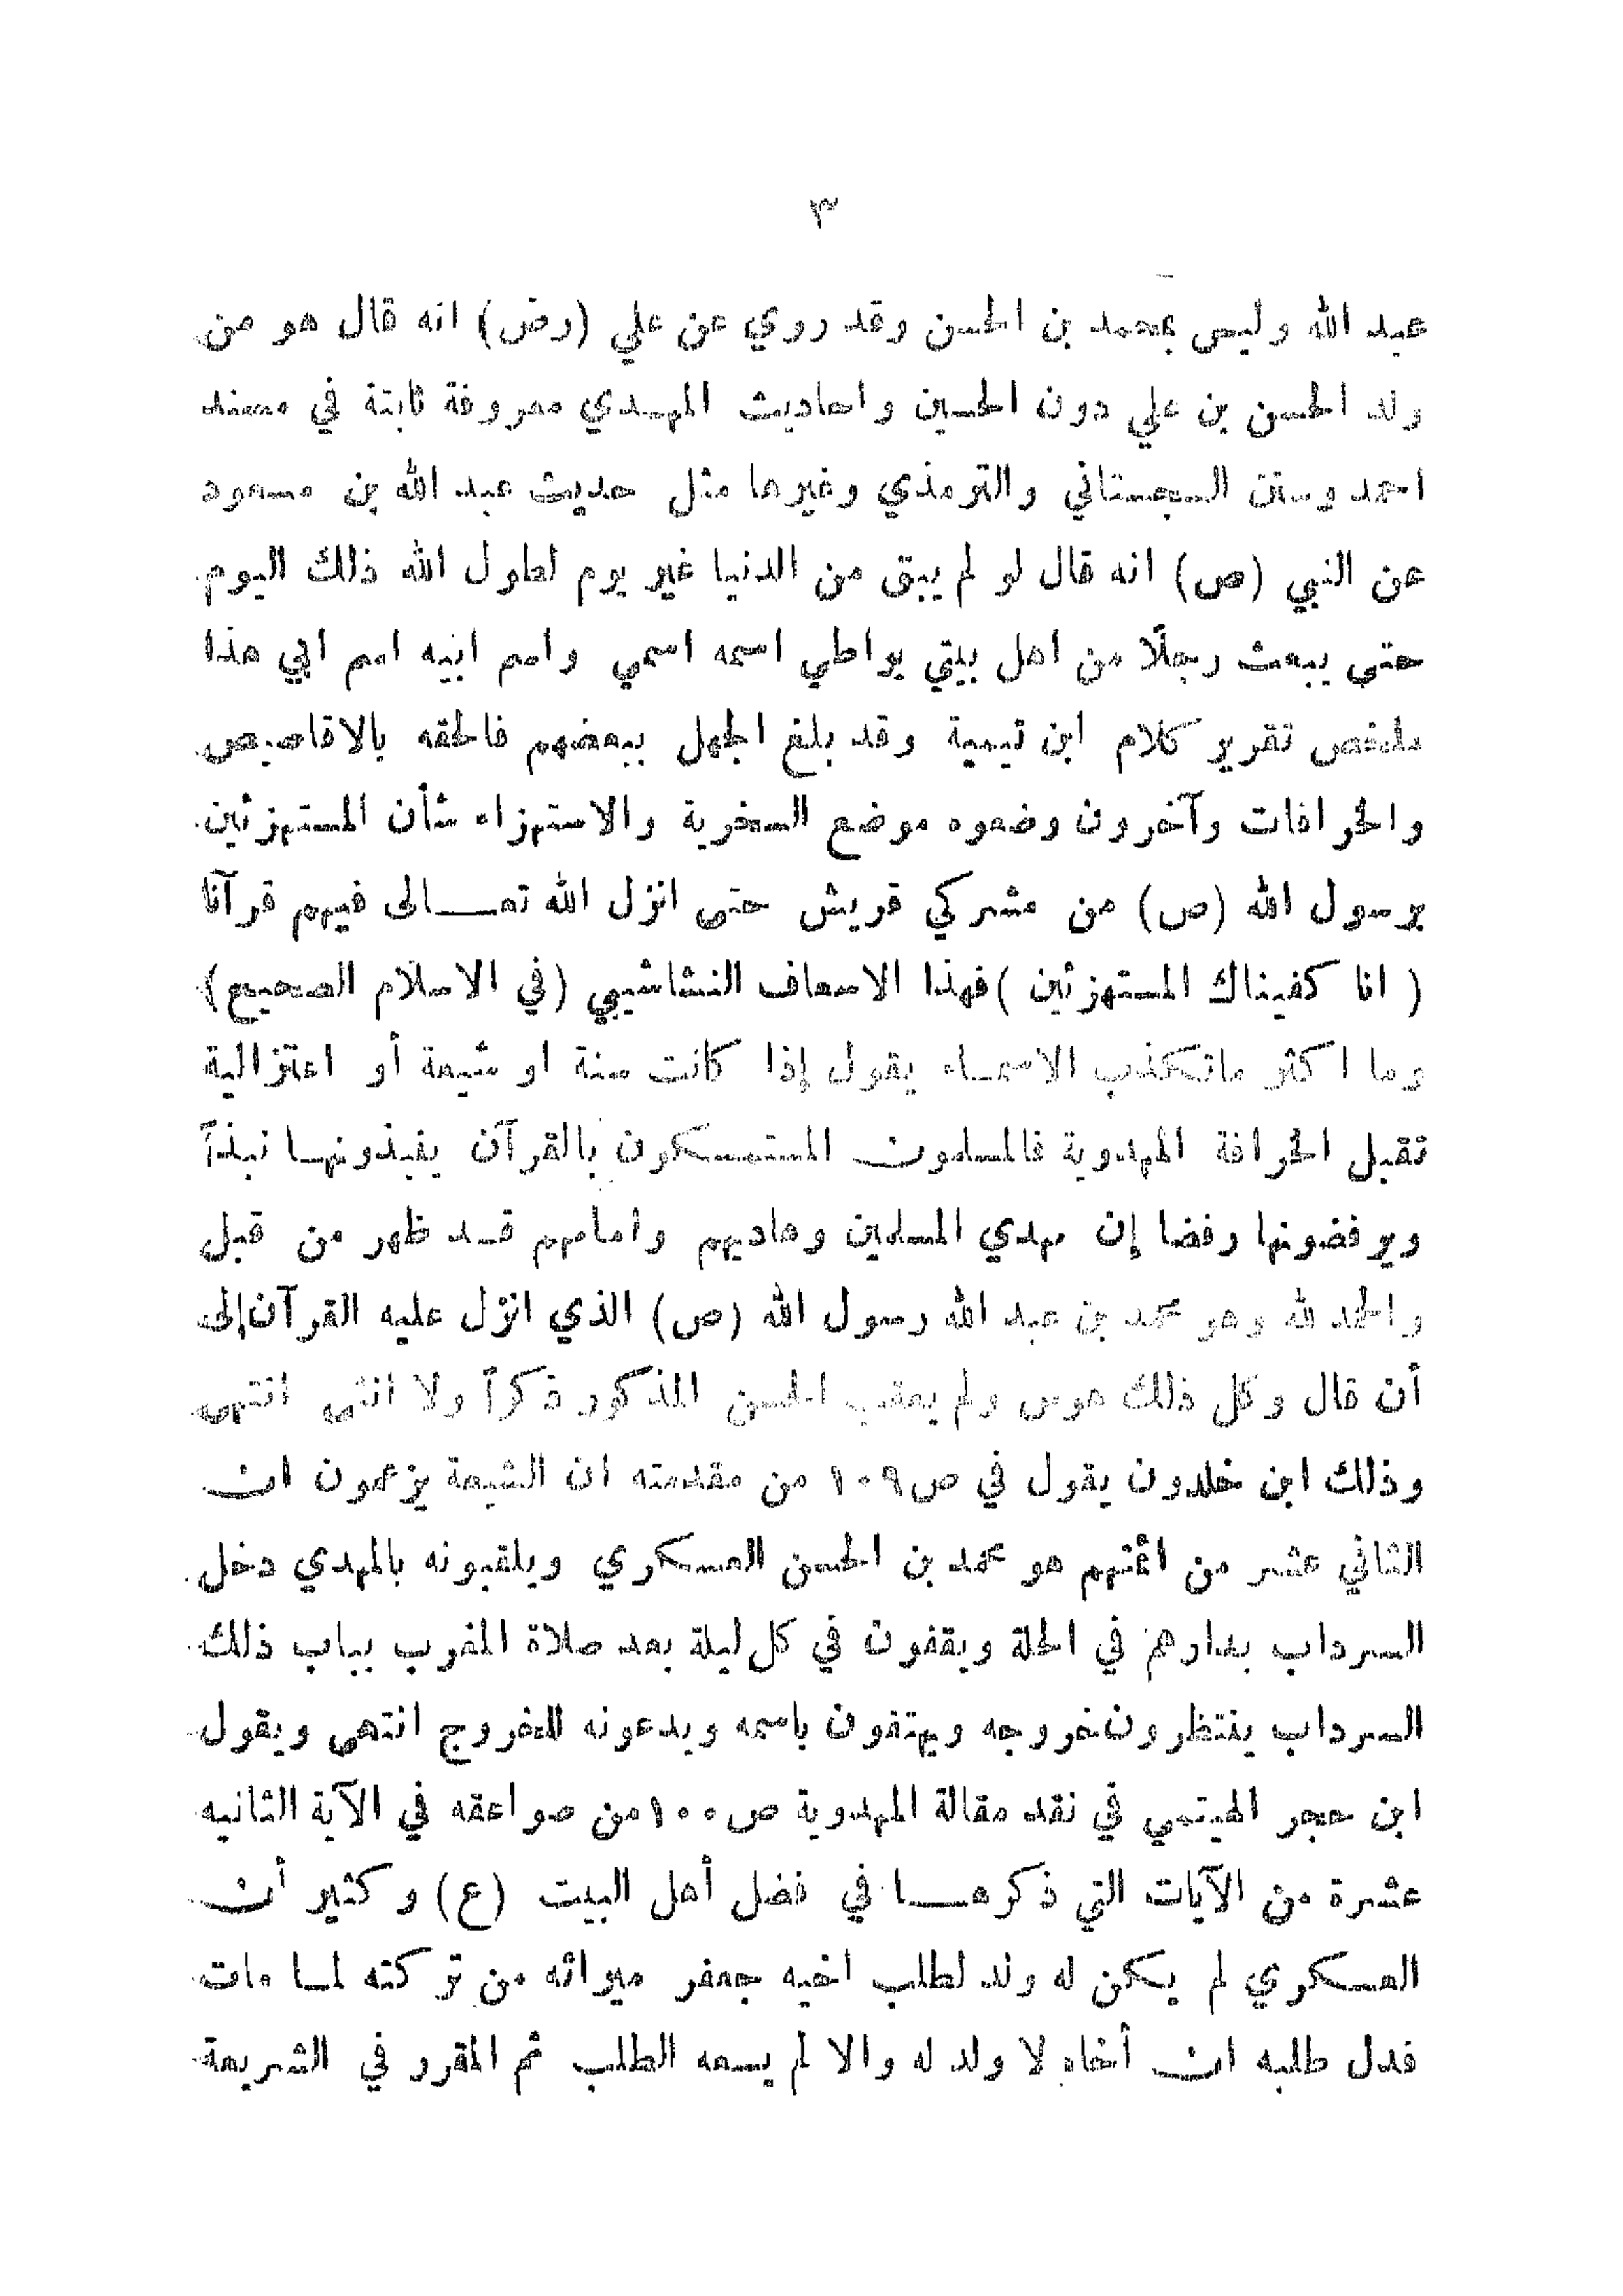 ٣
عبد الله وليس بمحمد بن الحسن وقد روي عن علي (رض) انه قال هو من
ولد الحسن بن علي دون الحسين واحاديث المهدي معروفة ثابتة في مسند
احمد وسنن السجستاني والترمذي وغيرها مثل حديث عبد الله بن مسعود
عن النبي (ص) انه قال لو لم يبق من الدنيا غير يوم لطول الله ذلك اليوم
حتى يبعث رجلًا من اهل بيتي يواطي اسمه اسمي واسم ابيه اسم ابي هذا
ملخص تقرير كلام ابن تيمية وقد بلغ الجهل ببعضهم فالحقه بالاقاصيص
والخرافات وآخرون وضعوه موضع السخرية والاستهزاء شأن المستهزئين
برسول الله (ص) من مشركي قريش حتى انزل الله تعالى فيهم قرآنا
( انا كفيناك المستهزئين )فهذا الاسعاف النشاشيبي (في الاسلام الصحيح)
وما اكثر ماتكذب الاسماء يقول إذا كانت سنة او شيعة أو اعتزالية
تقبل الخرافة المهدوية فالمسلمون المستمسكون بالقرآن ينبذونها نبذاً
ويرفضونها رفضا إن مهدي المسلمين وهاديهم وامامهم قد ظهر من قبل
والحمد لله وهو محمد بن عبد الله رسول الله (ص) الذي انزل عليه القرآن إلى
أن قال وكل ذلك هوس ولم يعقب الحسن المذكور ذكراً ولا انثى انتهى
وذلك ابن خلدون يقول في ص١٠٩ من مقدمته ان الشيعة يزعمون ان
الثاني عشر من ائمتهم هو محمد بن الحسن العسكري ويلقبونه بالمهدي دخل
السرداب بدارهم في الحلة ويقفون في كل ليلة بعد صلاة المغرب بباب ذلك
السرداب ينتظرون خروجه ويهتفون باسمه ويدعونه للخروج انتهى ويقول
ابن حجر الهيتمي في نقد مقالة المهدوية ص١٠٠ من صواعقه في الآية الثانيه
عشرة من الآيات التي ذكرها في فضل أهل البيت (ع) وكثير أن
العسكري لم يكن له ولد لطلب اخيه جعفر ميراثه من تركته لما مات
فدل طلبه ان أخاه لا ولد له والا لم يسعه الطلب ثم المقرر في الشريعة